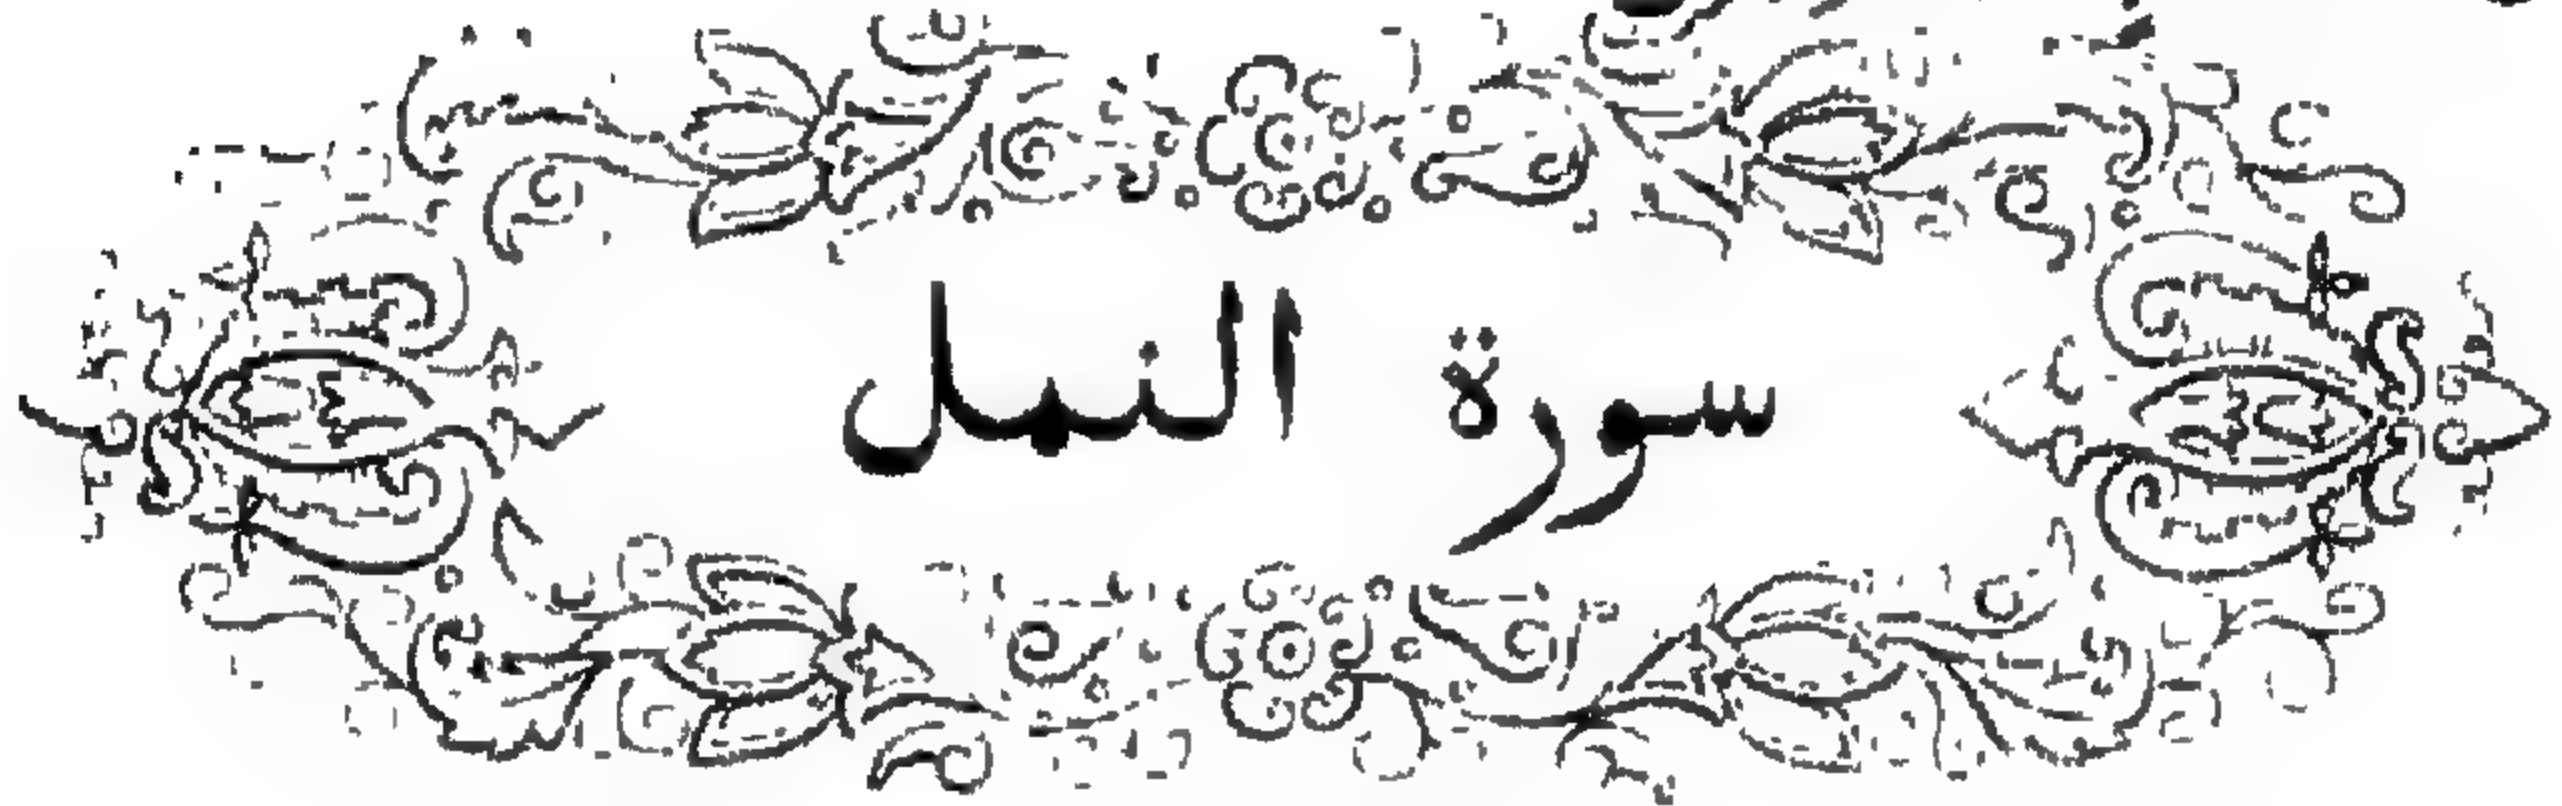 سورة النمل